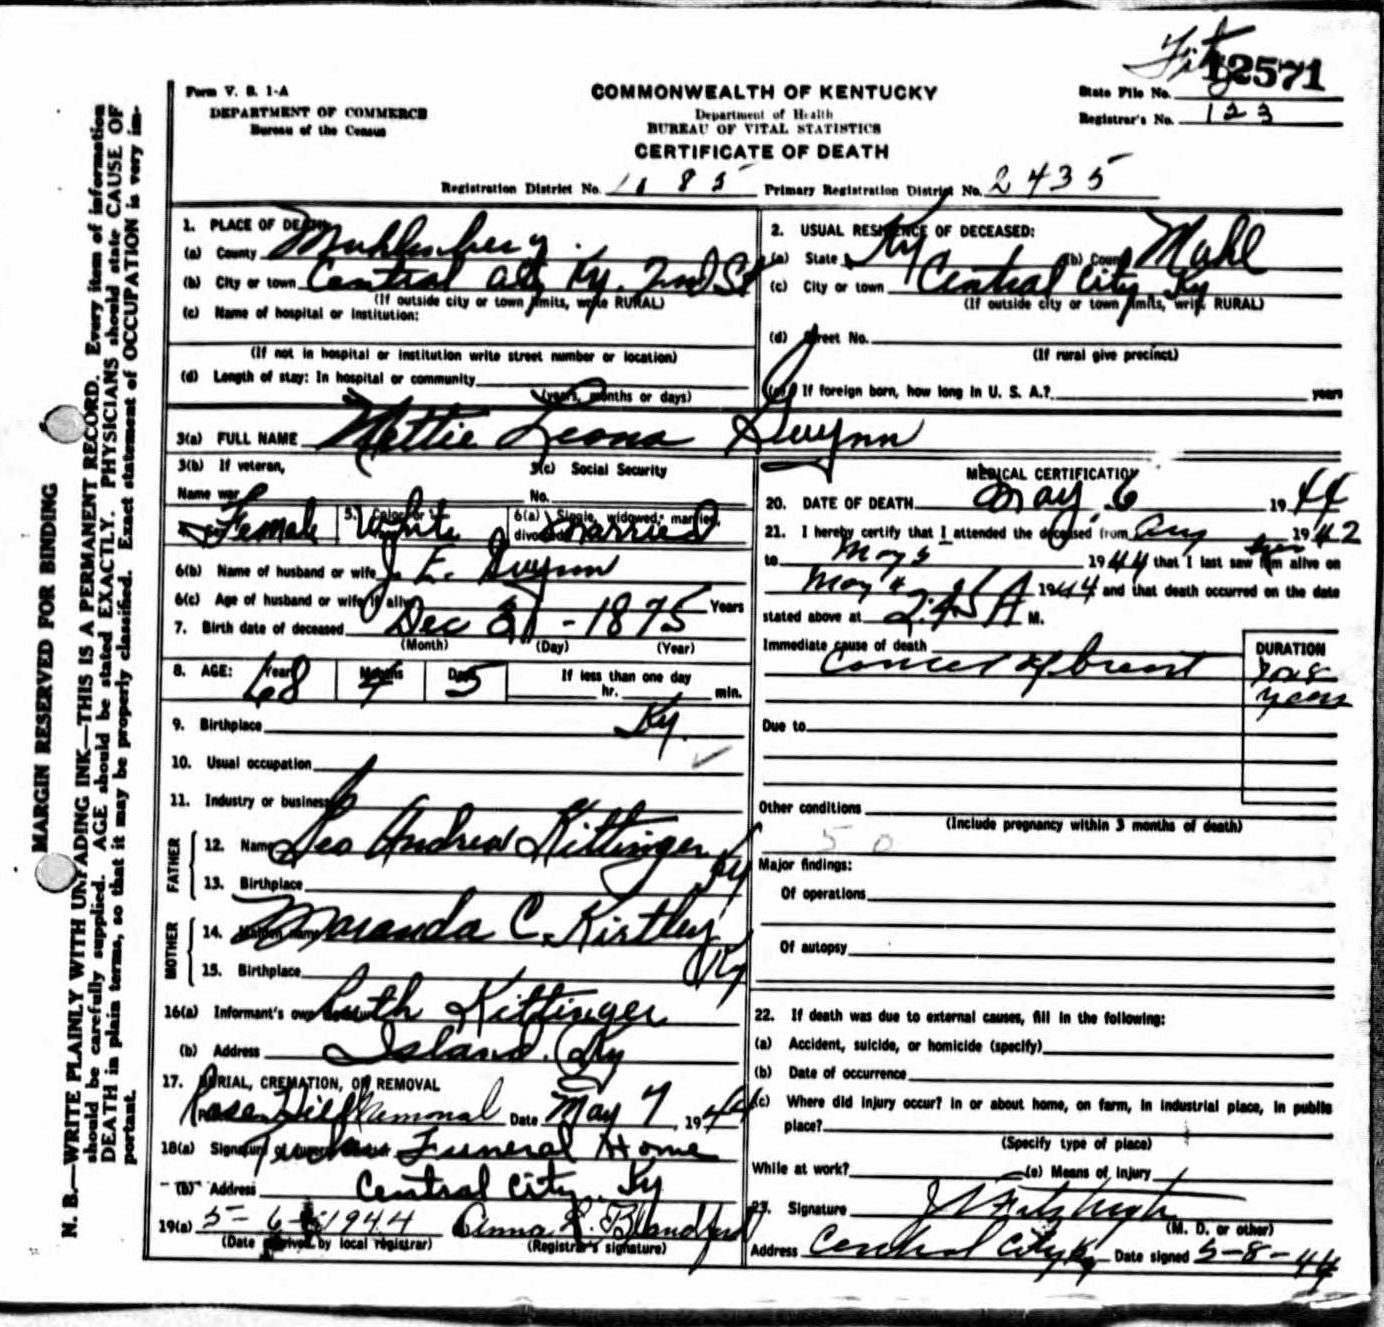 Fitz
12571
Form V. S. 1-A
DEPARTMENT OF COMMERCE
Bureau of the Census
COMMONWEALTH OF KENTUCKY
Department of Health
BUREAU OF VITAL STATISTICS
CERTIFICATE OF DEATH
State File No.
Registrar's No. 123
Registration District No. 1085 Primary Registration District No. 2435
MARGIN RESERVED FOR BINDING
N. B.—WRITE PLAINLY WITH UNFADING INK—THIS IS A PERMANENT RECORD. Every item of information
should be carefully supplied. AGE should be stated EXACTLY. PHYSICIANS should state CAUSE OF
DEATH in plain terms, so that it may be properly classified. Exact statement of OCCUPATION is very im-
portant.
1. PLACE OF DEATH
(a) County Muhlenberg
(b) City or town Central City Ky. 2nd St
(If outside city or town limits, write RURAL)
(c) Name of hospital or institution:
(If not in hospital or institution write street number or location)
(d) Length of stay: In hospital or community
(years, months or days)
2. USUAL RESIDENCE OF DECEASED:
(a) State Ky (b) County Muhl
(c) City or town Central City Ky
(If outside city or town limits, write RURAL)
(d) Street No.
(If rural give precinct)
(e) If foreign born, how long in U. S. A.? years
3(a) FULL NAME Mettie Leona Gwynn
3(b) If veteran,
Name war
3(c) Social Security
No.
Female
5. Color or White
6(a) Single, widowed, married,
divorced Married
6(b) Name of husband or wife J. E. Gwynn
6(c) Age of husband or wife if alive Years
7. Birth date of deceased Dec 31 - 1875
(Month) (Day) (Year)
8. AGE: Years 68 Months 4 Days 5 If less than one day
hr. min.
9. Birthplace Ky.
10. Usual occupation
11. Industry or business
FATHER
12. Name Geo Andrew Kittinger
13. Birthplace Ky
MOTHER
14. Maiden name Maranda C. Kirtley
15. Birthplace Ky
16(a) Informant's own Ruth Kittinger
(b) Address Island, Ky
17. BURIAL, CREMATION, OR REMOVAL
Rose Hill Memorial Date May 7, 1944
18(a) Signature Funeral Home
(b) Address Central City Ky
19(a) 5-6-1944 Anna L. Blandford
(Date received by local registrar) (Registrar's signature)
MEDICAL CERTIFICATION
20. DATE OF DEATH May 6 1944
21. I hereby certify that I attended the deceased from Aug 1942
to May 5 1944 that I last saw her alive on
May 4 1944 and that death occurred on the date
stated above at 2:45 A M.
Immediate cause of death
Cancer of breast
DURATION
years
Due to
Other conditions
(Include pregnancy within 3 months of death)
50
Major findings:
Of operations
Of autopsy
22. If death was due to external causes, fill in the following:
(a) Accident, suicide, or homicide (specify)
(b) Date of occurrence
(c) Where did injury occur? In or about home, on farm, in industrial place, in public
place?
(Specify type of place)
While at work? (e) Means of injury
23. Signature J W Fitzhugh
(M. D. or other)
Address Central City Ky Date signed 5-8-44